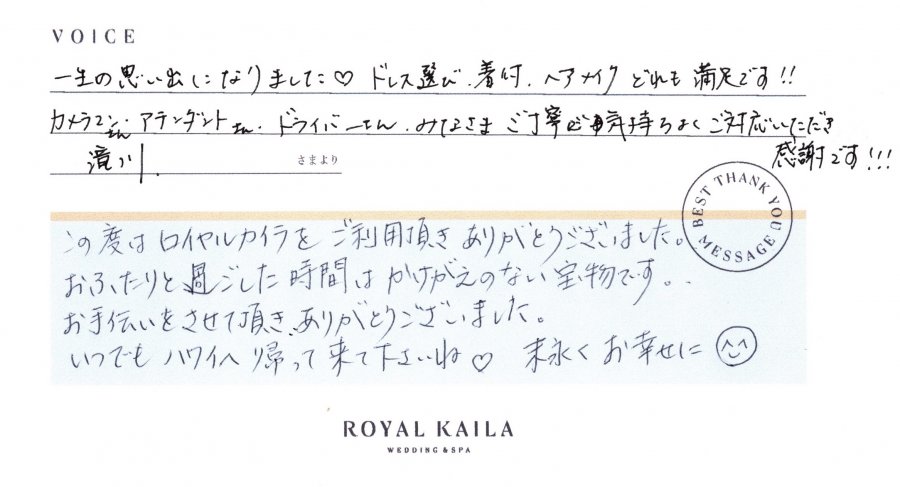 VOICE
一生の思い出になりました♡ ドレス選び、着付、ヘアメイク どれも満足です!!
カメラマンさん・アテンダントさん・ドライバーさん、みなさま ご丁寧で気持ちよくご対応いただき
感謝です!!!
滝川 さまより
BEST THANK YOU MESSAGE
この度はロイヤルカイラをご利用頂きありがとうございました。
おふたりと過ごした時間はかけがえのない宝物です。
お手伝いをさせて頂き、ありがとうございました。
いつでもハワイへ帰って来て下さいね♡ 末永くお幸せに
ROYAL KAILA
WEDDING & SPA